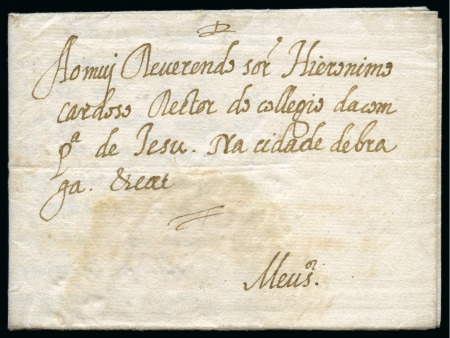 Ao muj Reverendo sor Hieronimo
cardoso Rector do collegio dacom
pa de Iesu. Na cidade debra
ga. &ceat
Meu sor.